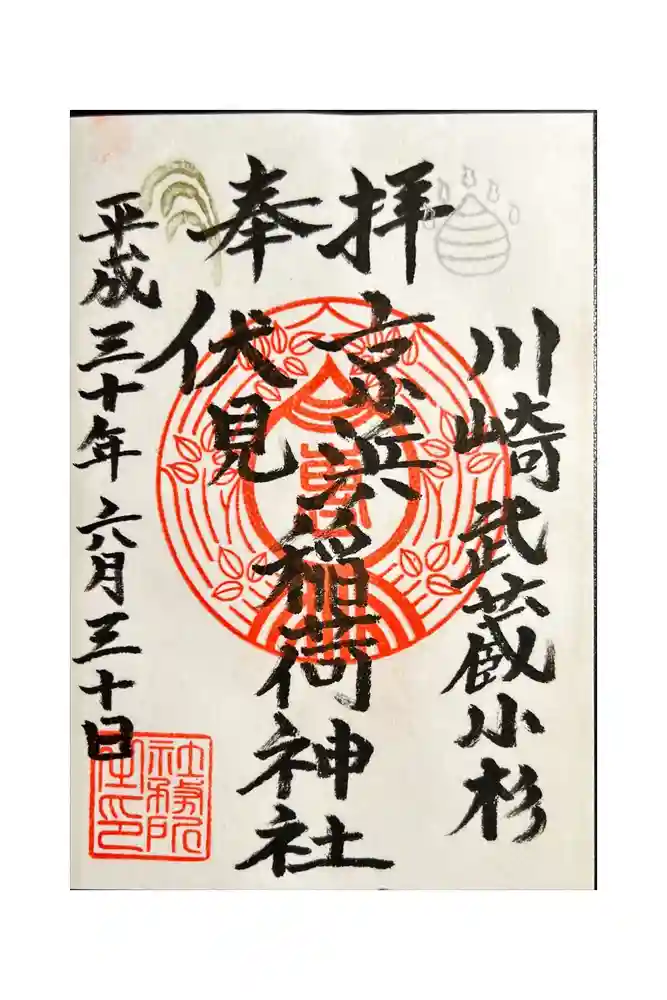 奉拝
川崎武蔵小杉
京浜
伏見
稲荷神社
平成三十年六月三十日
社務所
之印